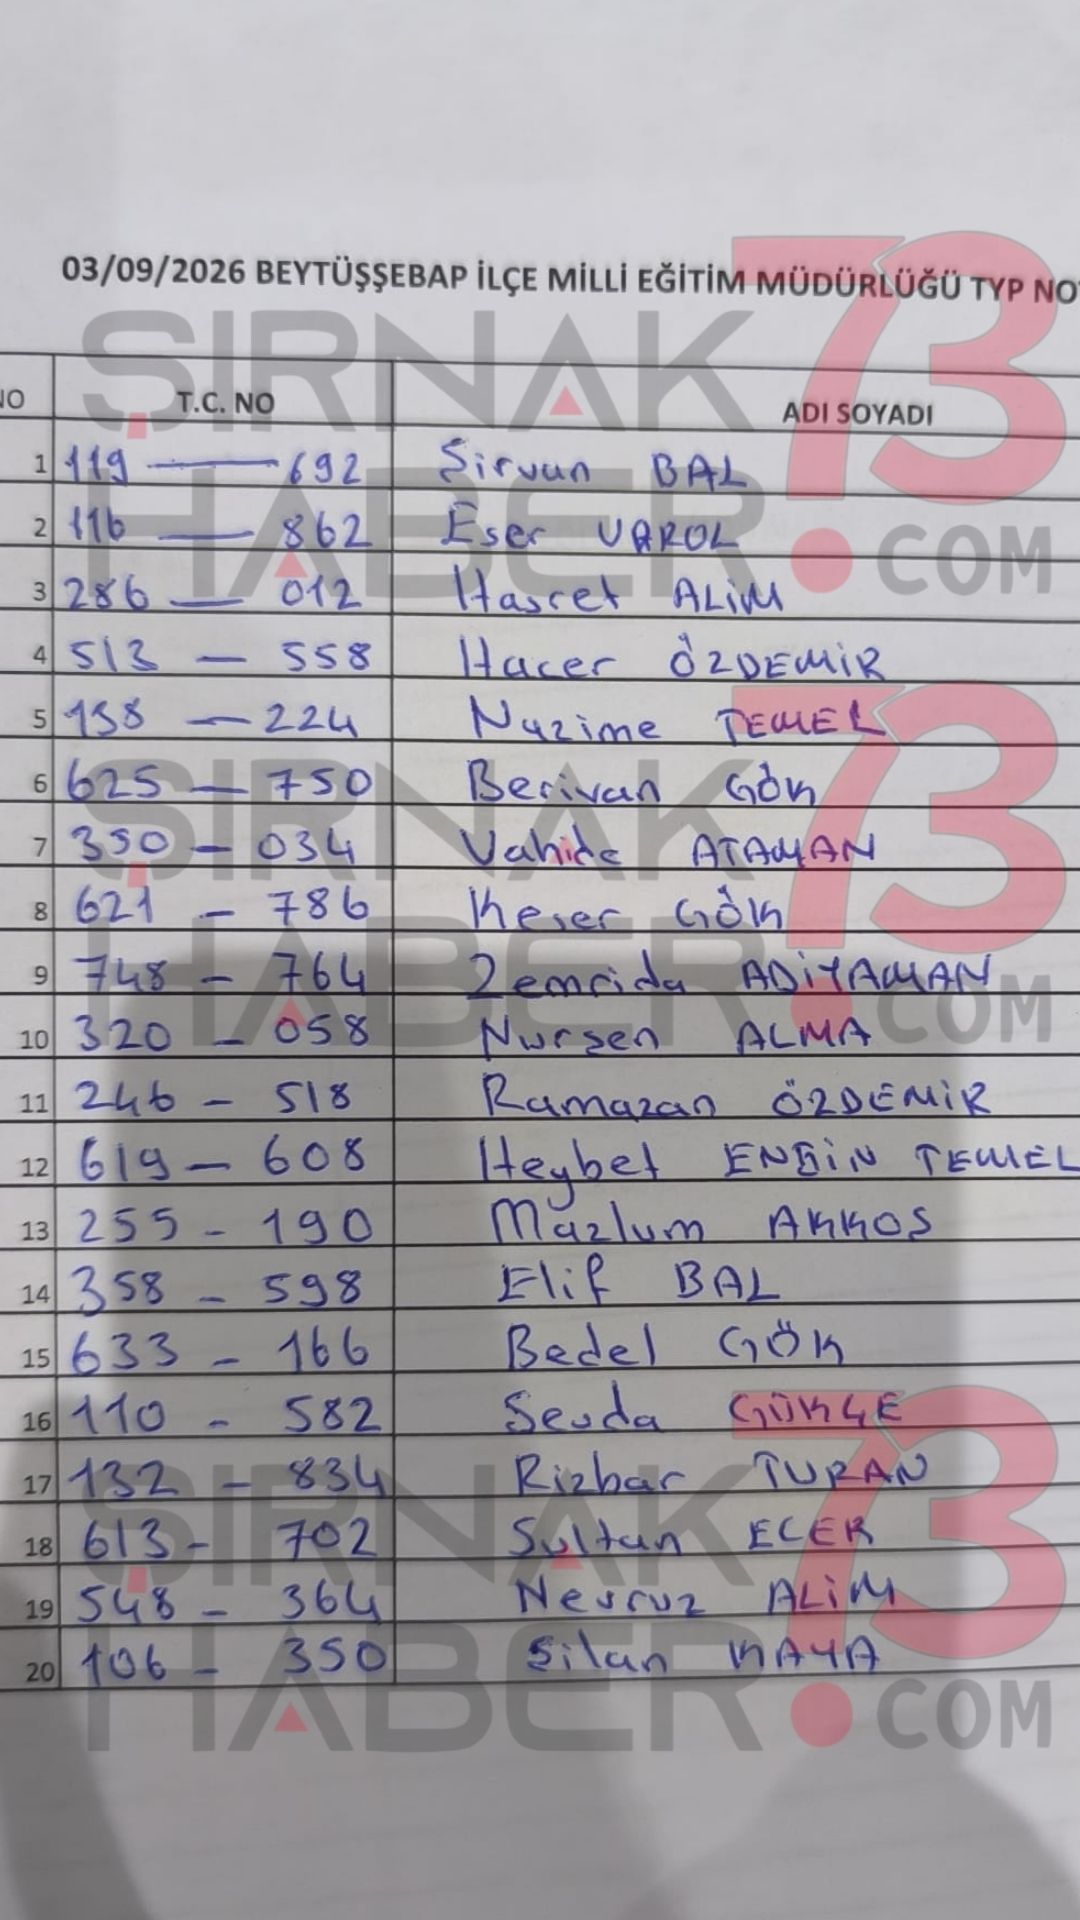 03/09/2026 BEYTÜŞŞEBAP İLÇE MİLLİ EĞİTİM MÜDÜRLÜĞÜ TYP NO
NO T.C. NO ADI SOYADI
1 119 — 692 Sirvan BAL
2 116 — 862 Eser VAROL
3 286 — 012 Hasret ALİM
4 513 — 558 Hacer ÖZDEMİR
5 198 — 224 Nazime TEMEL
6 625 — 750 Berivan GÖK
7 350 — 034 Vahide ATAMAN
8 621 - 786 Keser GÖK
9 748 - 764 Zemrida ADİYAMAN
10 320 - 058 Nurşen ALMA
11 246 - 518 Ramazan ÖZDEMİR
12 619 — 608 Heybet ENGİN TEMEL
13 255 - 190 Mazlum AKKOŞ
14 358 - 598 Elif BAL
15 633 - 166 Bedel GÖK
16 110 - 582 Sevda GÖKÇE
17 132 - 834 Rizbar TURAN
18 613 - 702 Sultan ECER
19 548 - 364 Nevruz ALİM
20 106 - 350 Silan KAYA
ŞIRNAK
HABER73.COM
ŞIRNAK
HABER73.COM
ŞIRNAK
HABER73.COM